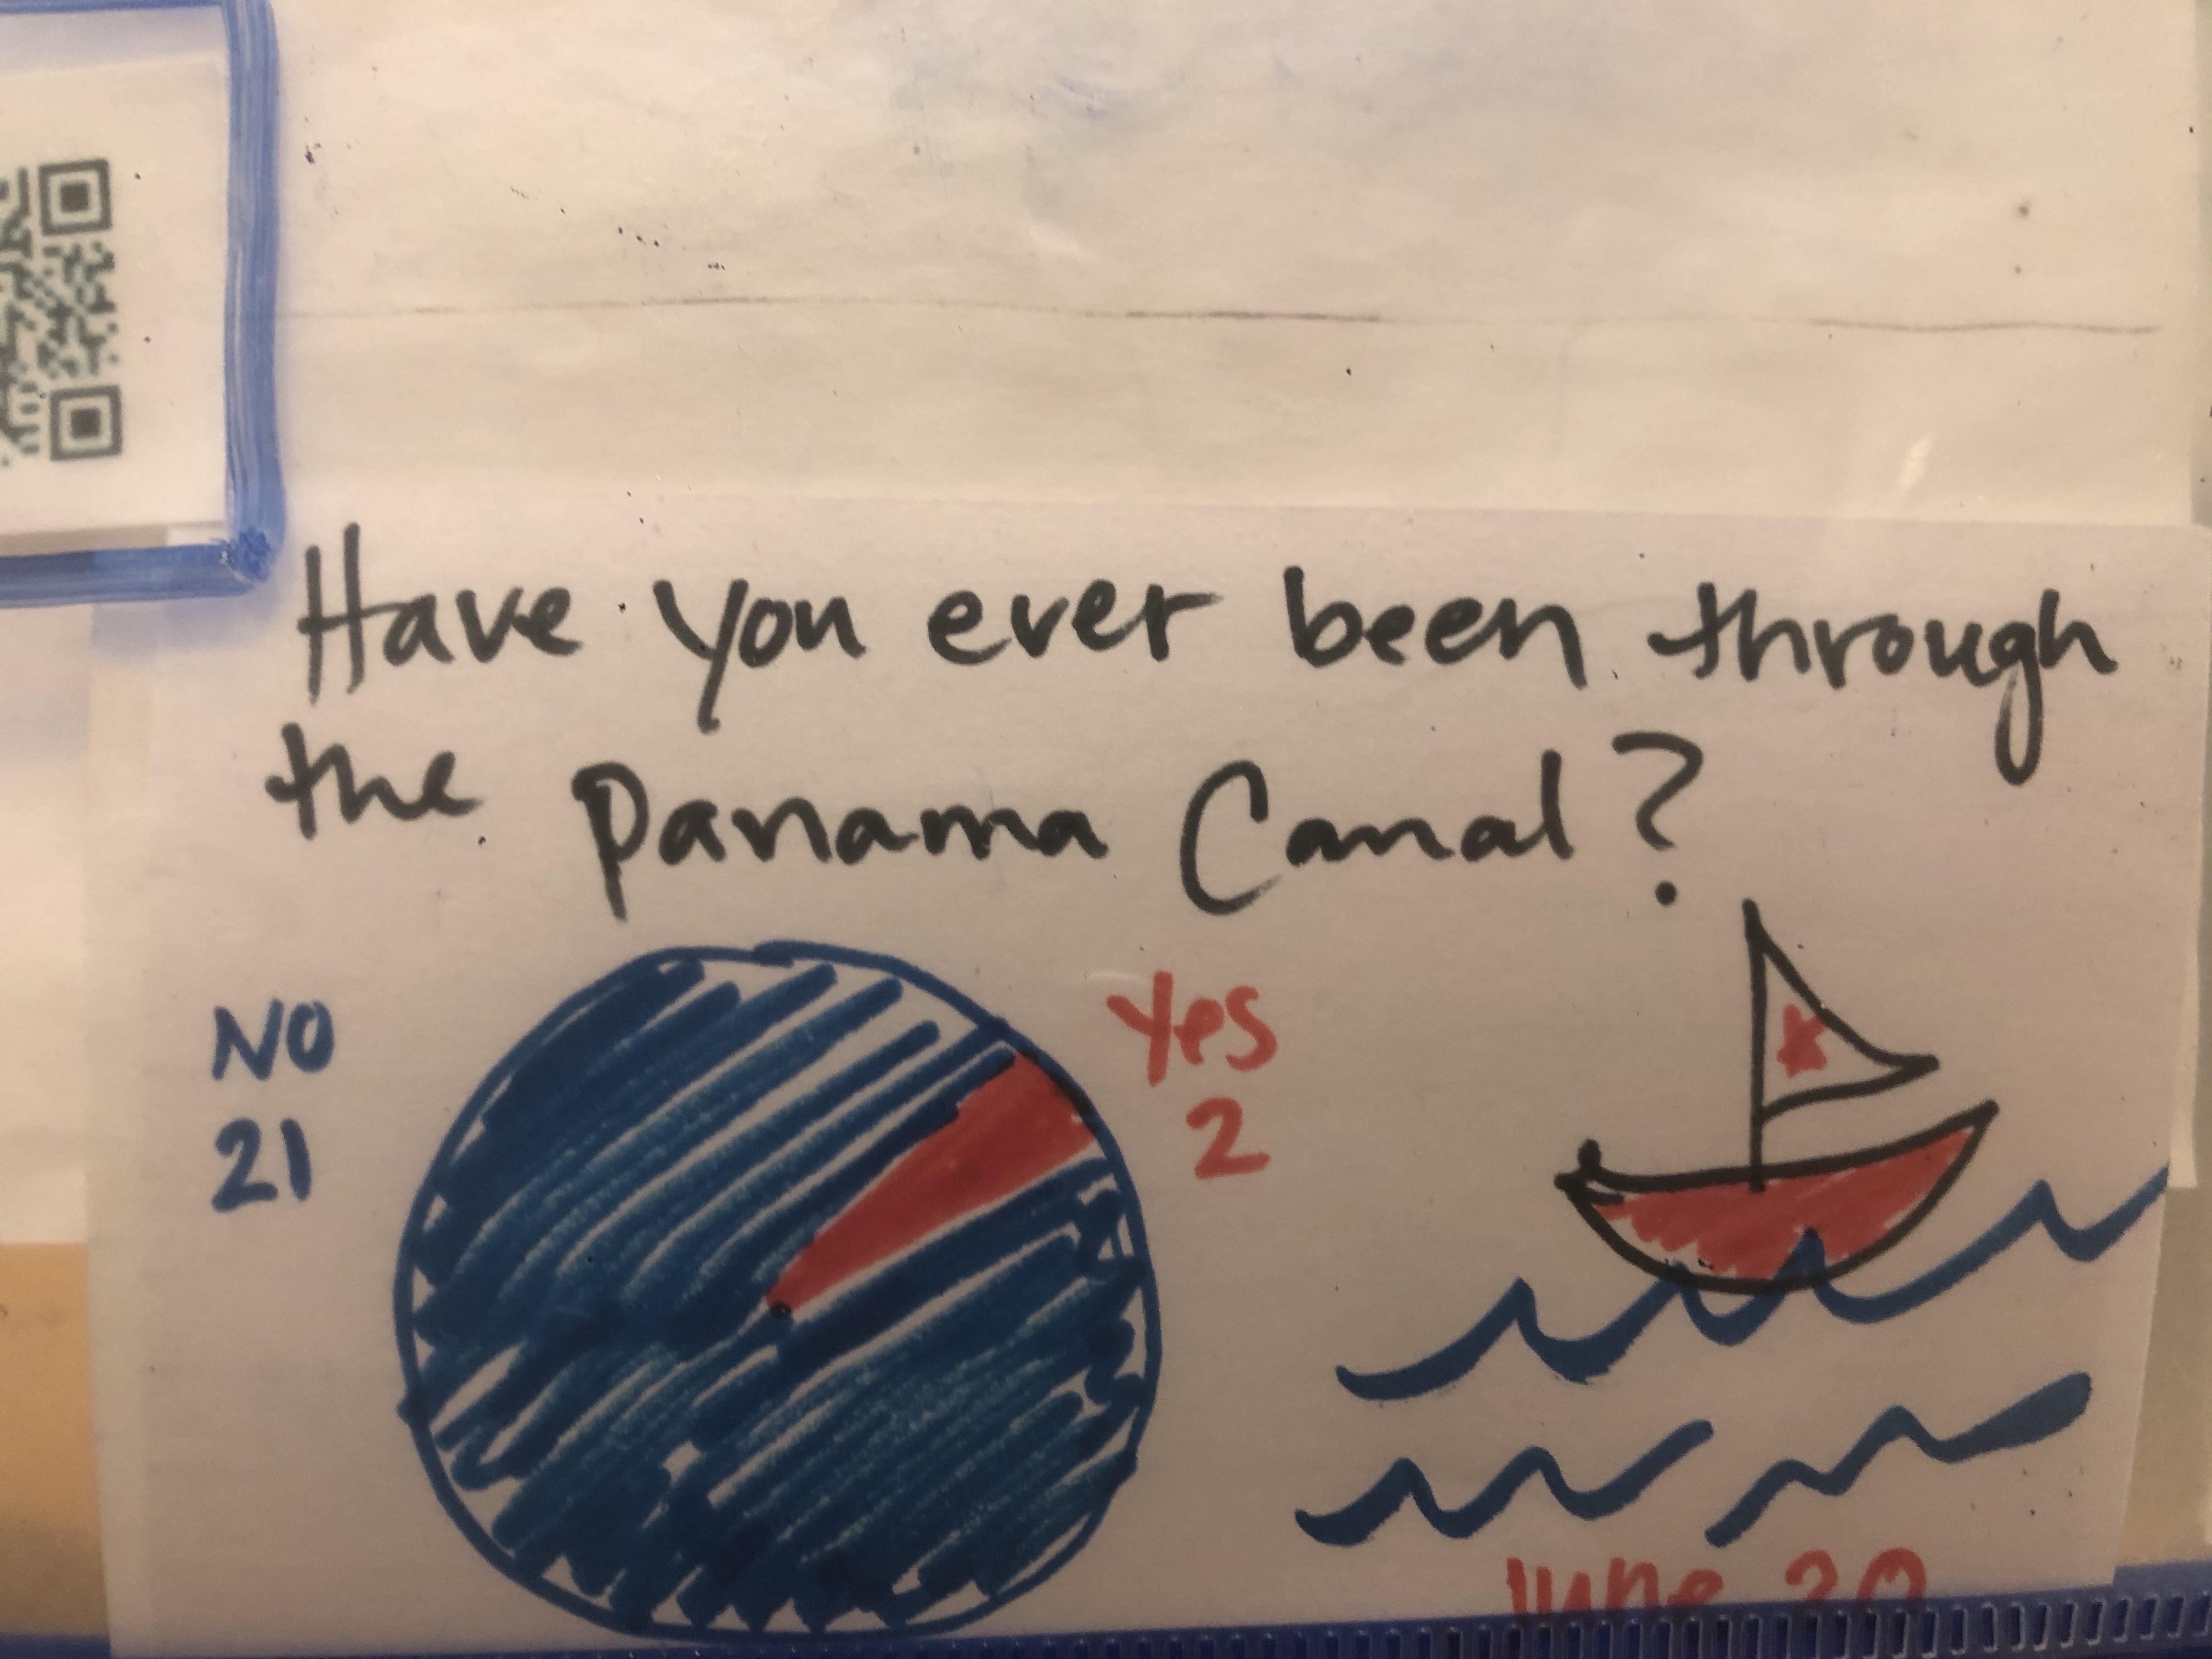 Have you ever been through
the Panama Canal?
NO
21
Yes
2
June 20